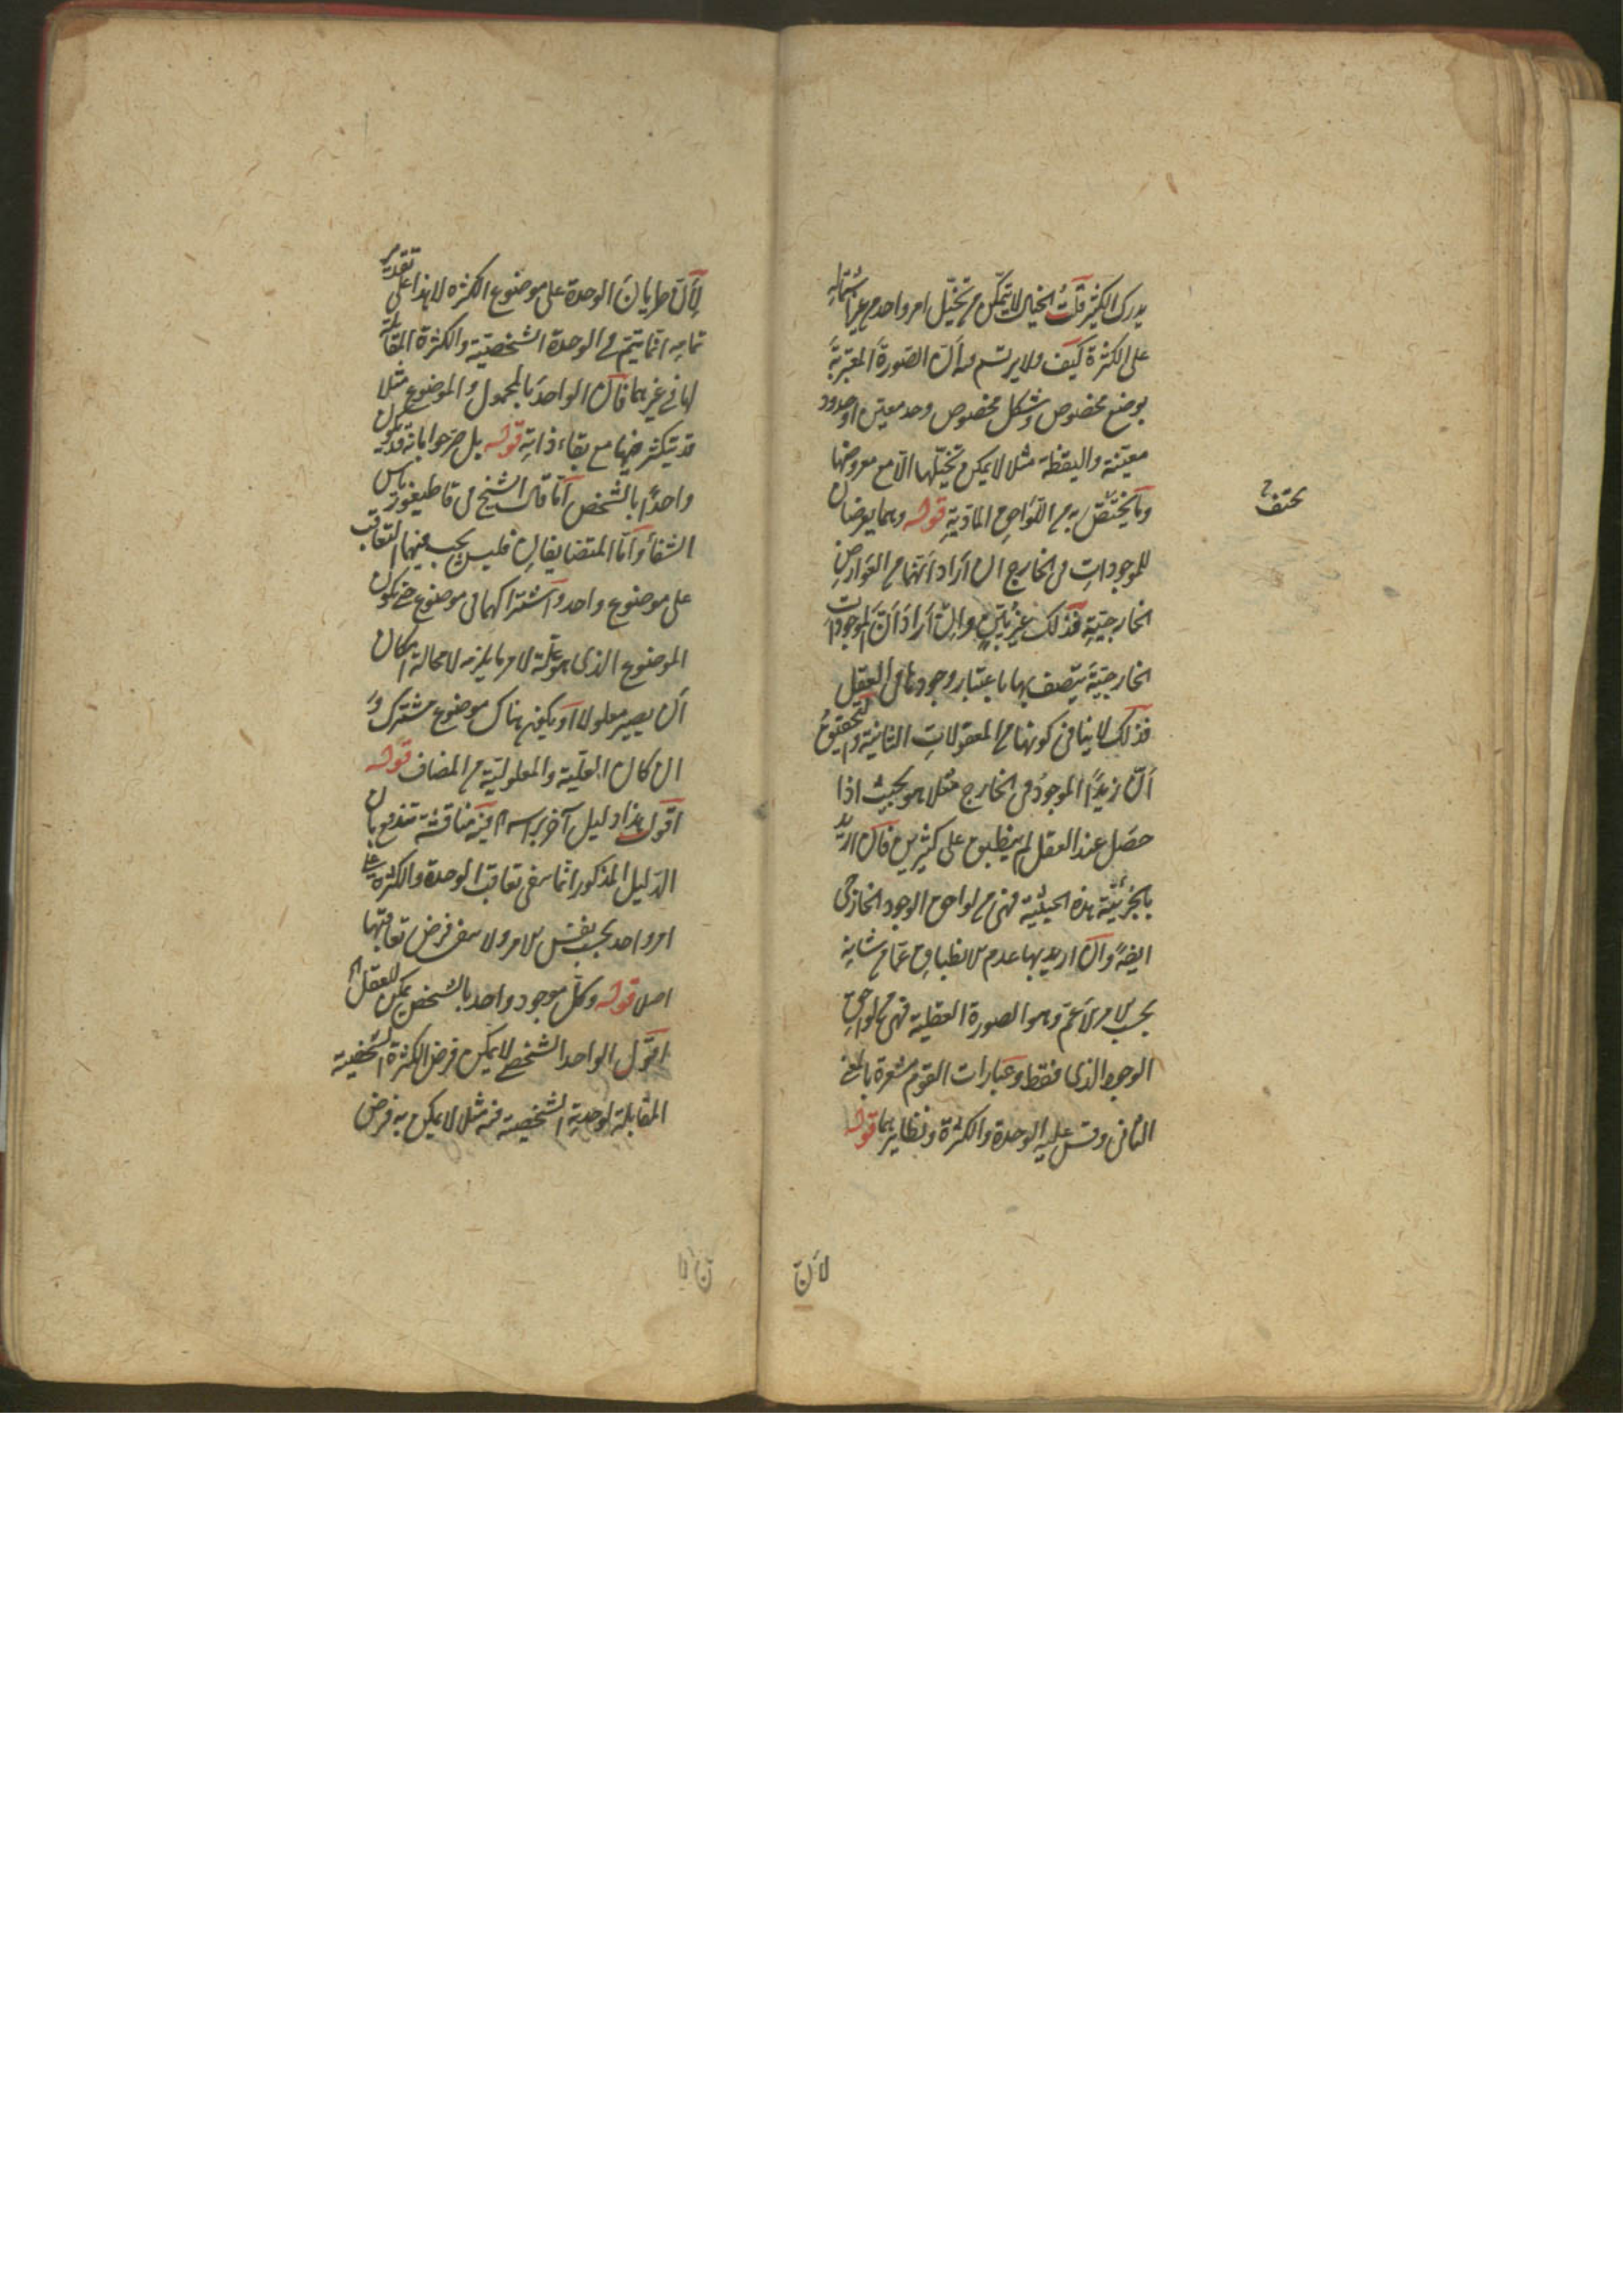 يدرك الكثير قلت الخيال لا يتمكن من تخيل امر واحد من غير اشتماله
على الكثرة كيف ولا يرتسم فيه الا الصورة المقترنة
بوضع مخصوص وشكل مخصوص وحد معين او حدود
معينة واليقظة مثلا لا يمكن تخيلها الا مع معروضها
وما يختص به من اللواحق المادية قوله وهما يعرضان
للموجودات فى الخارج ان اراد انهما من العوارض
الخارجية فذلك غير بين وان اراد ان الموجودات
الخارجية يتصف بها باعتبار وجودها فى العقل
فذلك لا ينافى كونها من المعقولات الثانية والتحقيق
ان زيدا الموجود فى الخارج مثلا هو بحيث اذا
حصل عند العقل لم ينطبق على كثيرين فان اريد
بالجزئية هذه الحيثية فهى من لواحق الوجود الخارجى
ايضا وان اريد بها عدم الانطباق عما من شانه
بحسب الامر الاعم وهو الصورة العقلية فهى من لواحق
الوجود الذى فقط وعبارات القوم مشعرة بالمعنى
الثانى وقس عليه الوحدة والكثرة ونظايرهما قوله
لان
لان طريان الوحدة على موضوع الكثرة لا هذا على تقدير
تمامه انما يتم فى الوحدة الشخصية والكثرة المقابلة
لها فى غيرهما فان الواحد بالمحمول والموضوع مثلا
قد يتكثر مع بقاء ذاته قوله بل صرحوا بانه قد يكون
واحدا بالشخص اما قال الشيخ فى قاطيغورياس
الشفا واما المتضايفان فليس يجب فيهما التعاقب
على موضوع واحد واشتراكهما فى موضوع حتى يكون
الموضوع الذى هو علة لامر ما يلزمه لا محالة امكان
ان يصير معلولا او يكون هناك موضوع مشترك و
ان كان العلية والمعلولية من المضاف قوله
اقول هذا دليل آخر براسه فيه مناقشة تندفع بان
الدليل المذكور انما ينفى تعاقب الوحدة والكثرة على
امر واحد بحسب نفس الامر ولا ينفى فرض تعاقبهما
اصلا قوله وكل موجود واحد بالشخص يمكن للعقل
اقول الواحد الشخصى لا يمكن فرض الكثرة الشخصية
المقابلة لوحدته الشخصية فيه مثلا لا يمكن به فرض